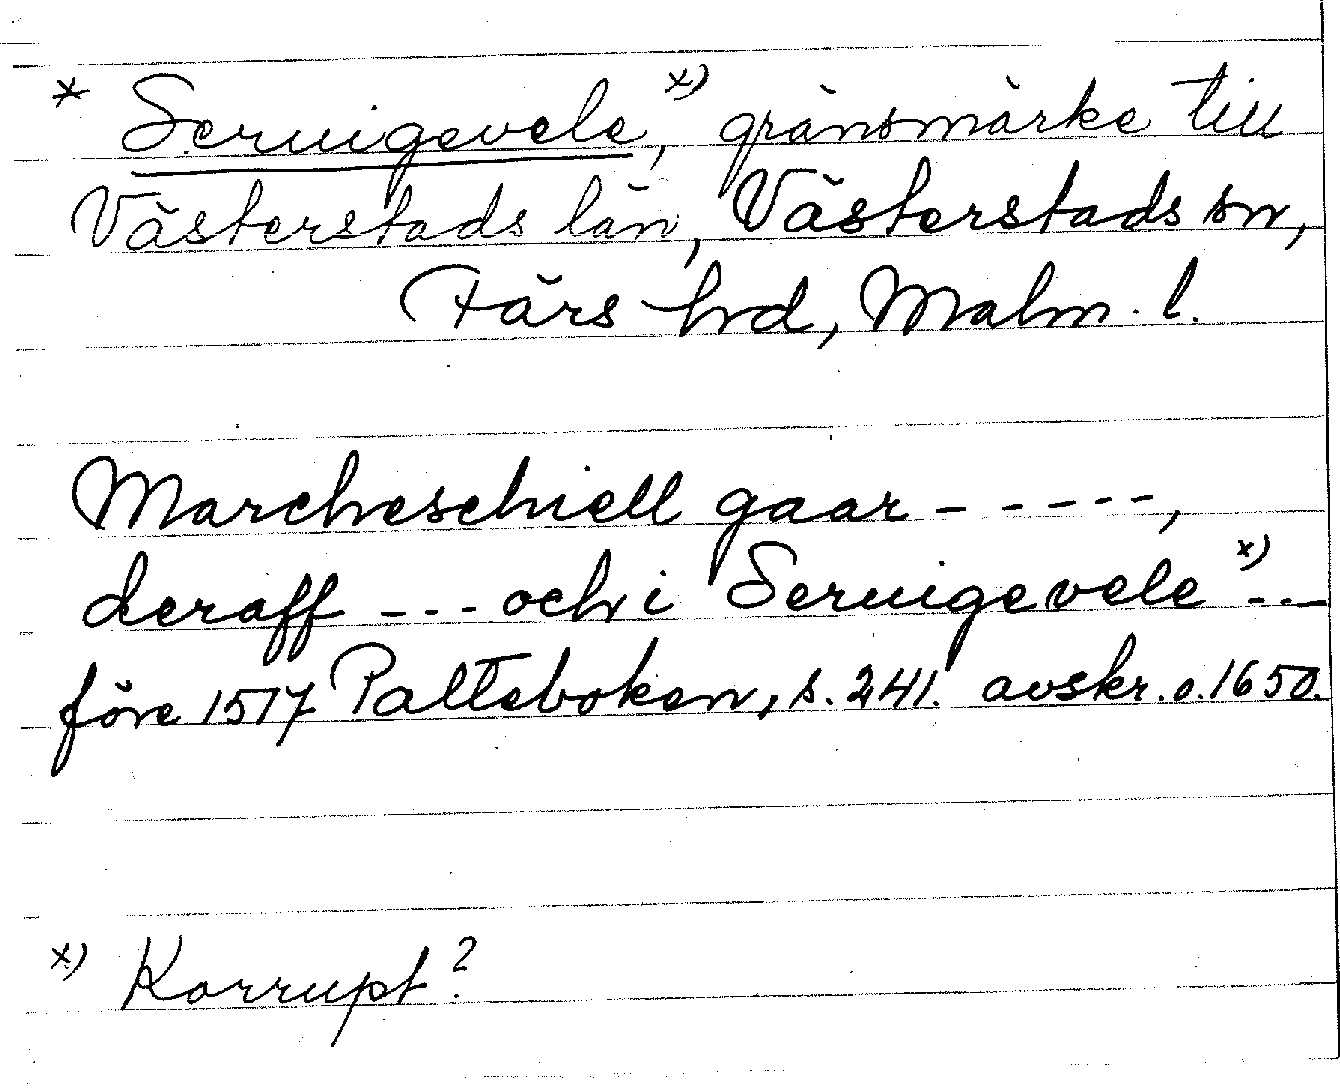 * Seruigevele,ˣ⁾ gränsmärke till
Västerstads län, Västerstads sn,
Färs hd, Malm. l.
Marcheschiell gaar - - - - -,
deraff - - - och i Seruigevele ˣ⁾ - - -
före 1517 Palteboken, s. 241. avskr. o. 1650.
x) Korrupt?